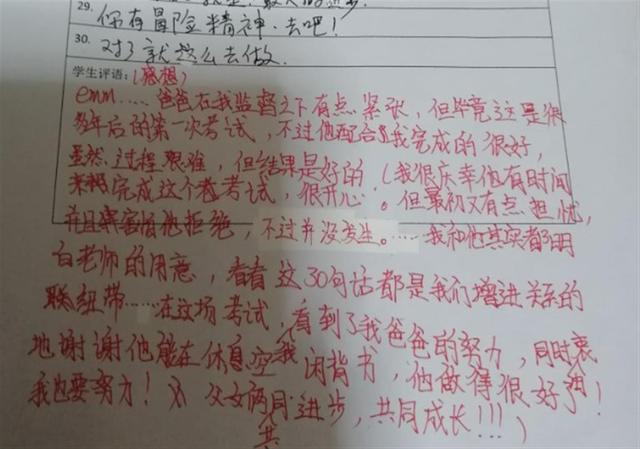 29. 你有冒险精神.去吧!
30. 对了就这么去做.
学生评语:(感想)
emm……爸爸在我监督之下有点紧张,但毕竟这是很
多年后的第一次考试,不过他配合我完成的很好,
虽然过程艰难,但结果是好的.(我很庆幸他有时间
来完成这个考试,很开心。但最初又有点担忧,
并且害怕他拒绝,不过并没发生。……我和他其实都明
白老师的用意,看看这30句话都是我们增进关系的
联纽带……在这场考试,看到了我爸爸的努力,同时衷
地谢谢他能在休息空闲我背书,他做得很好了!
我也要努力! 父女俩同进步,共同成长!!!)
共